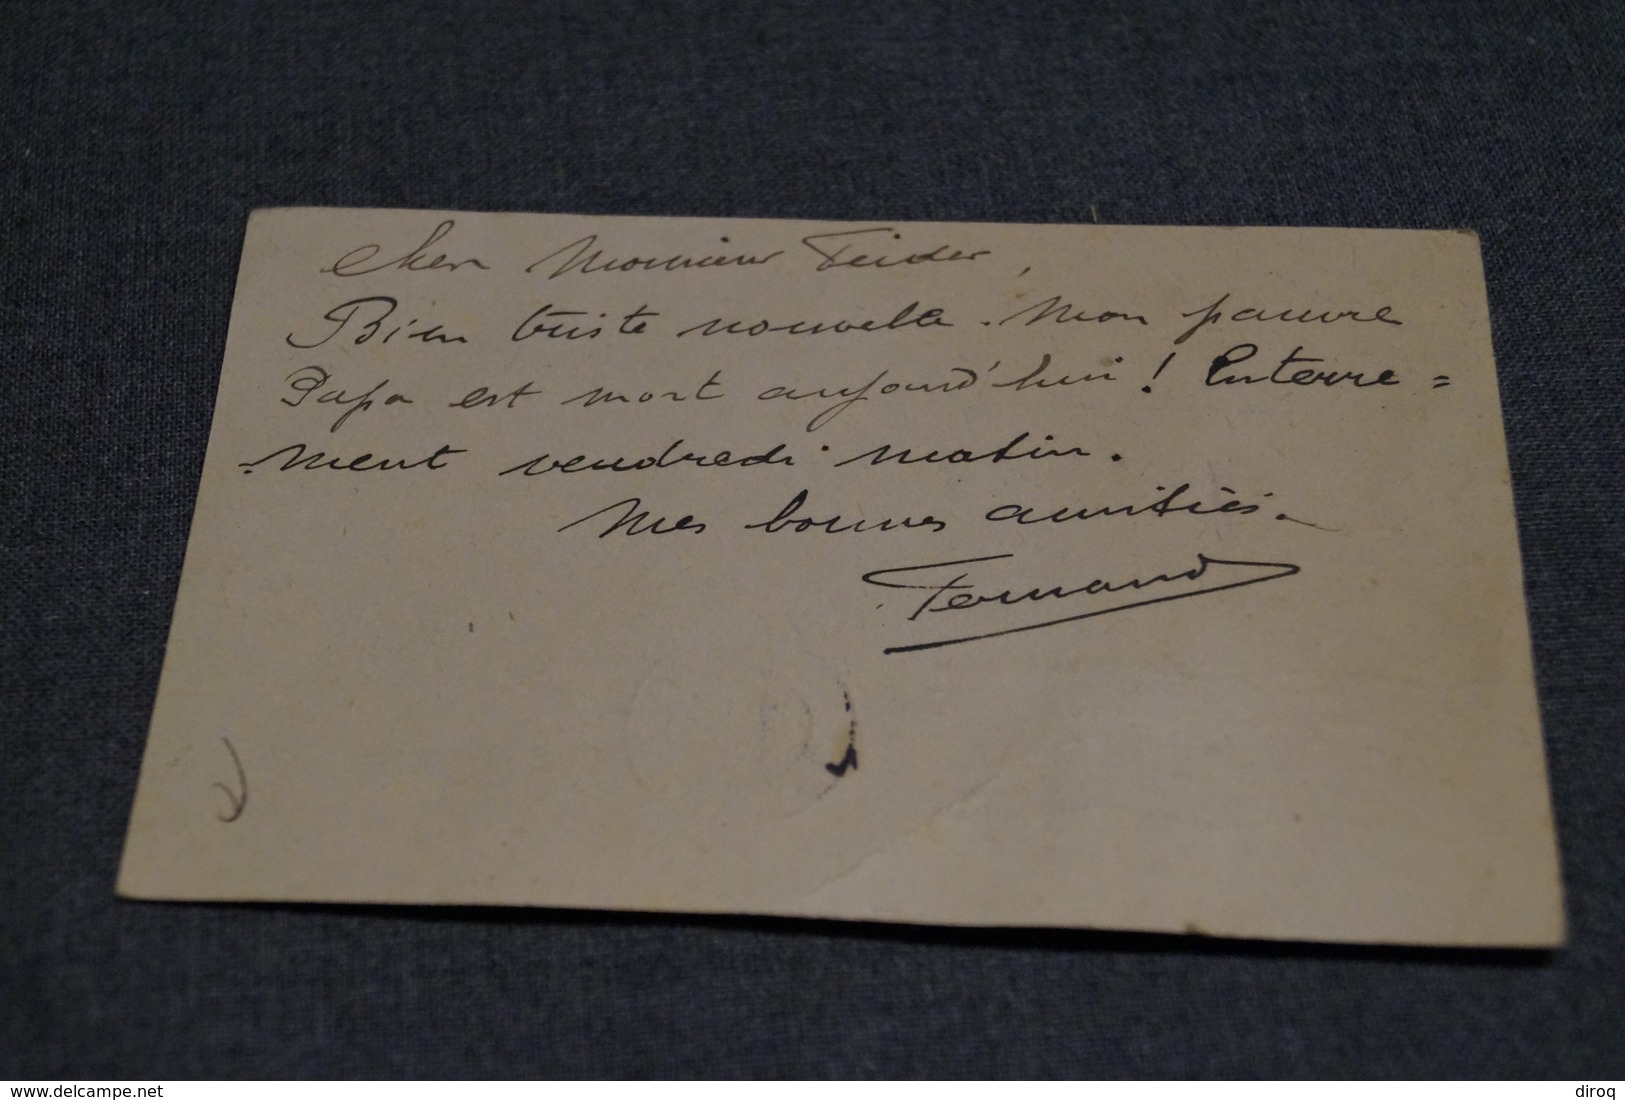 Cher Monsieur Feider,
Bien triste nouvelle. Mon pauvre
Papa est mort aujourd'hui ! Enterre=
-ment vendredi matin.
Mes bonnes amitiés.
Fernand
www.delcampe.net
diroq